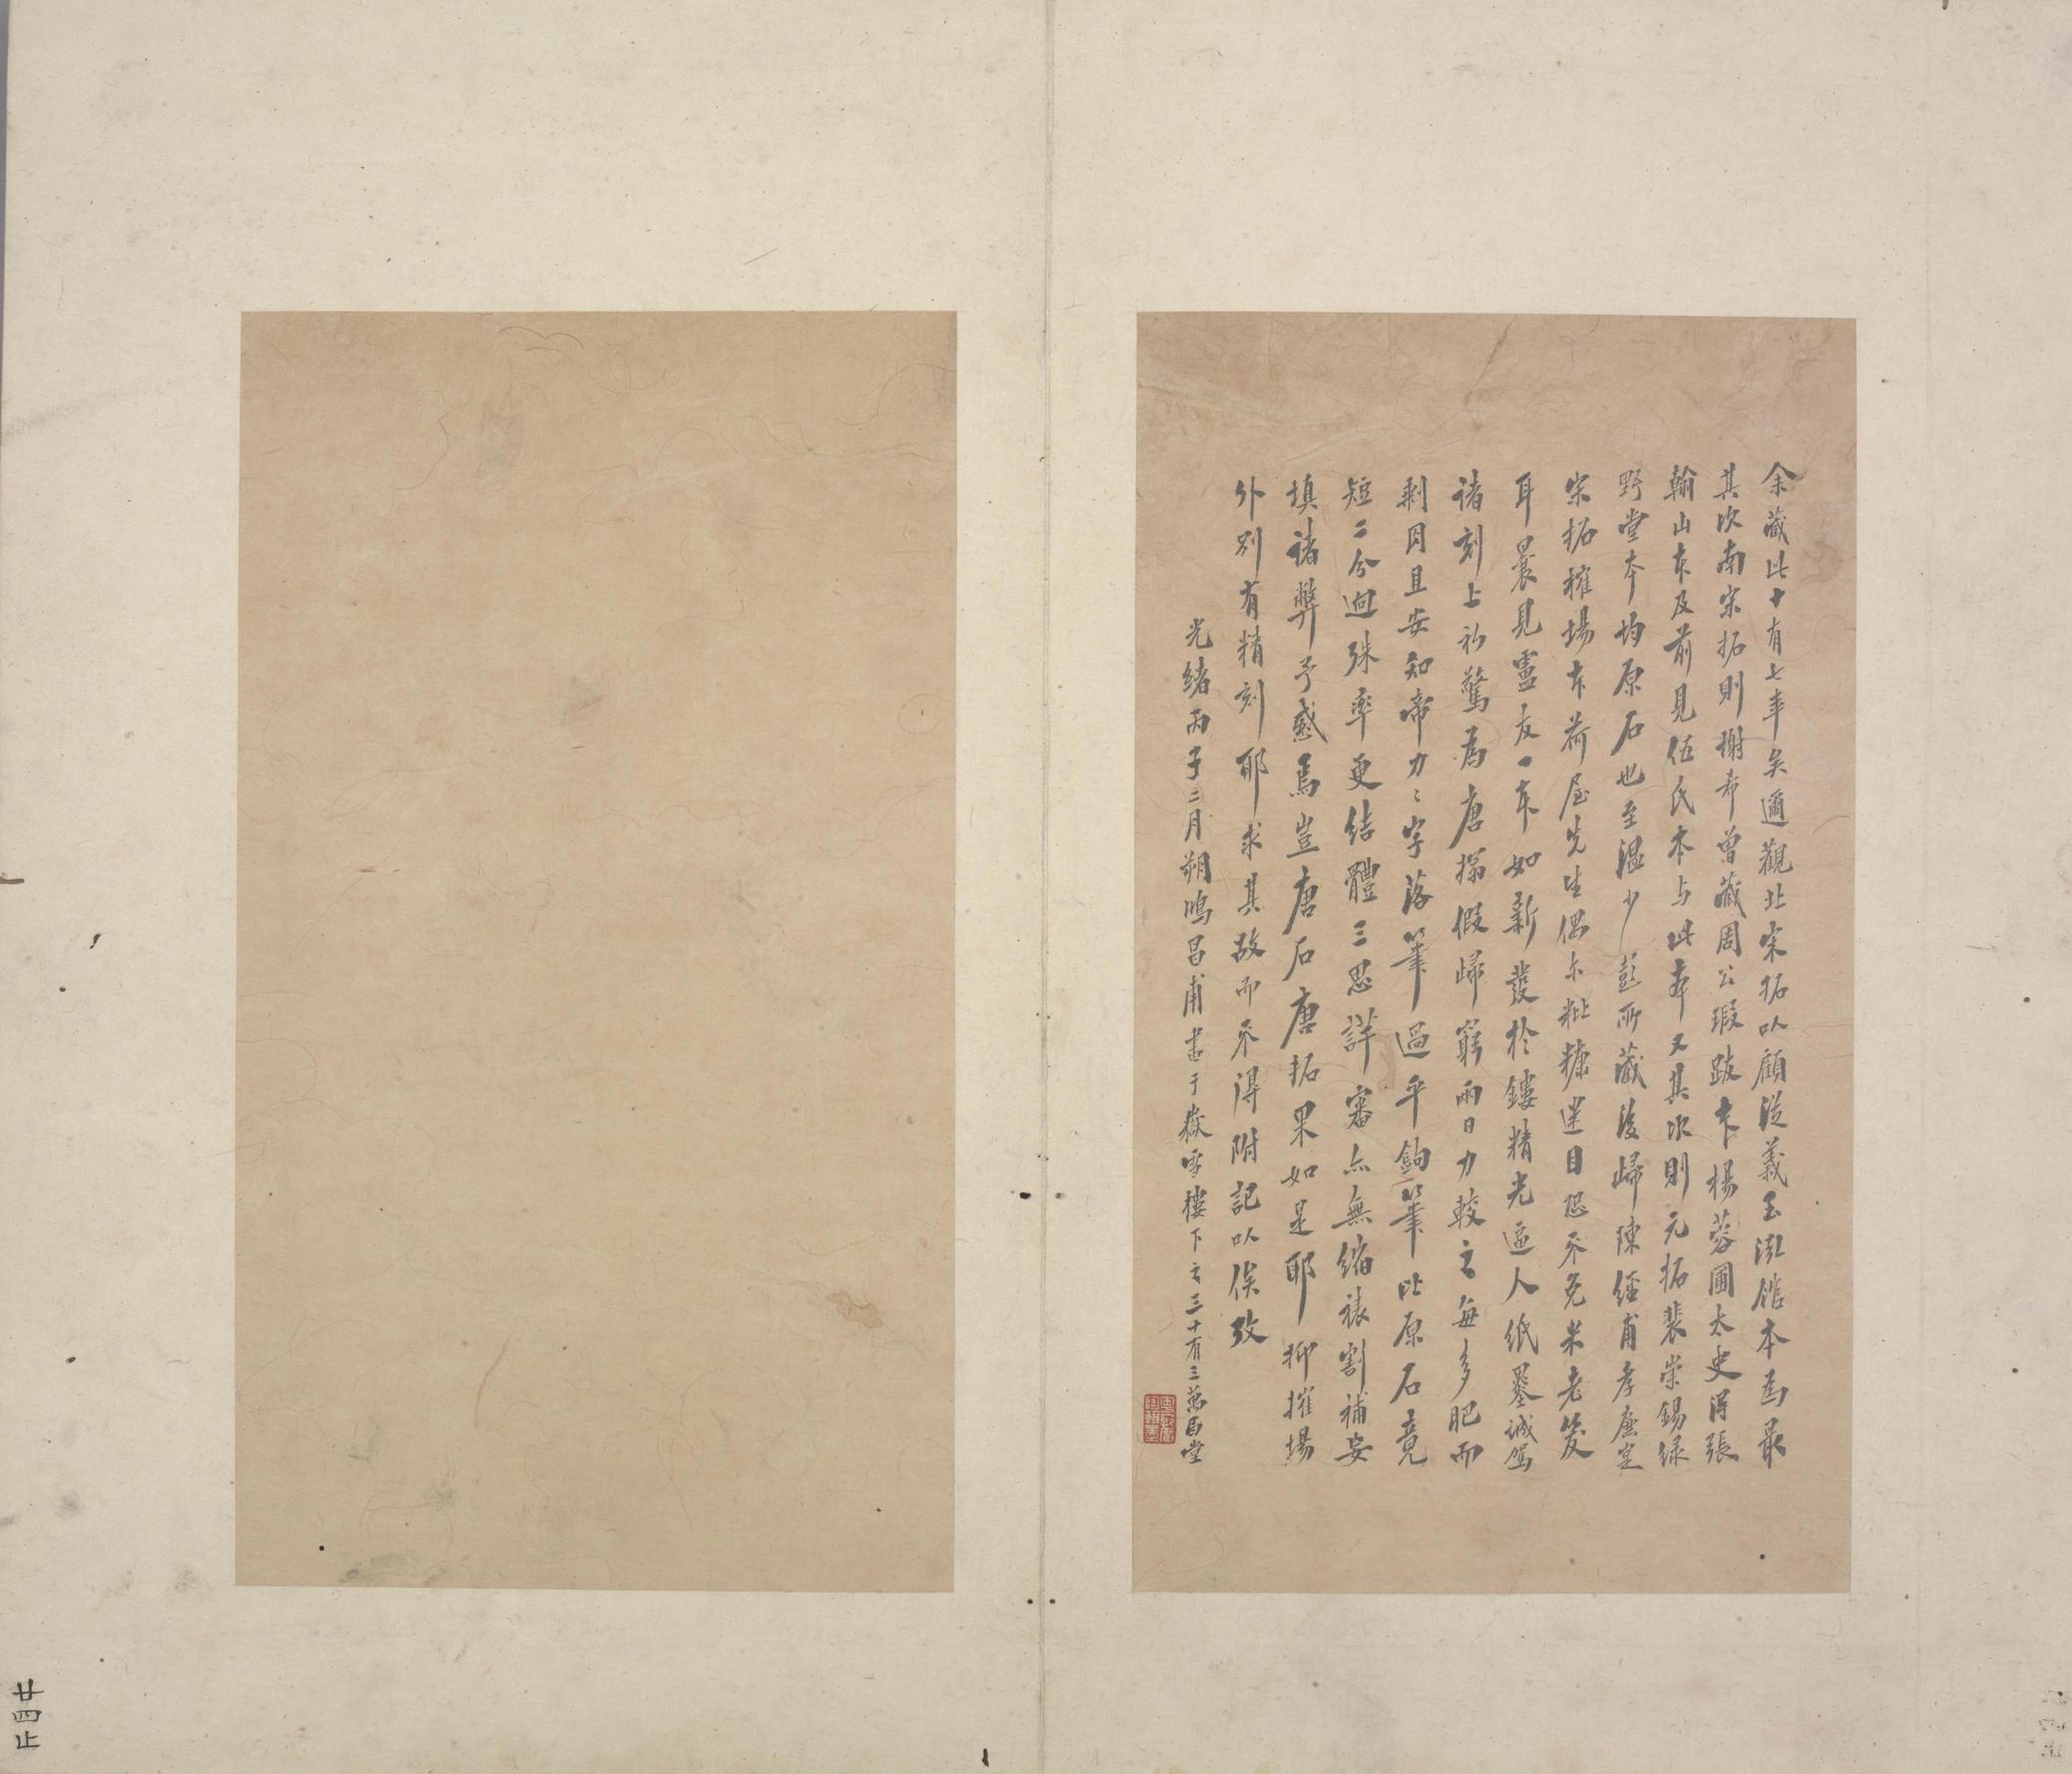 余藏此十有七年矣邇觀北宋拓以顧從義玉泓館本為最
其次南宋拓則榭希曾藏周公瑕跋本楊蓉圃太史得張
翰山本及前見伍氏本与此本又其次則元拓裴崇錫緑
野堂本均原石也至溫少彭所藏後歸陳經甫孝廉定
宋拓搉場本荷屋先生偶尔粃糠迷目恐不免米老笑
耳曩見靈友一本如新發於鏤精光逼人紙墨誠駕
諸刻上初驚為唐搨假歸窮兩日力較之每多肥而
剩因且安知帝力〻字落筆過平鈎筆比原石竟
短二分迥殊率更結體三思詳審亦無縮裱割補妄
填諸弊予惑焉豈唐石唐拓果如是耶抑搉場
外别有精刻耶求其故而不得附記以俟攷
光緒丙子二月朔鴻昌甫書于嶽雪樓下之三十有三萬卷堂
廿四止